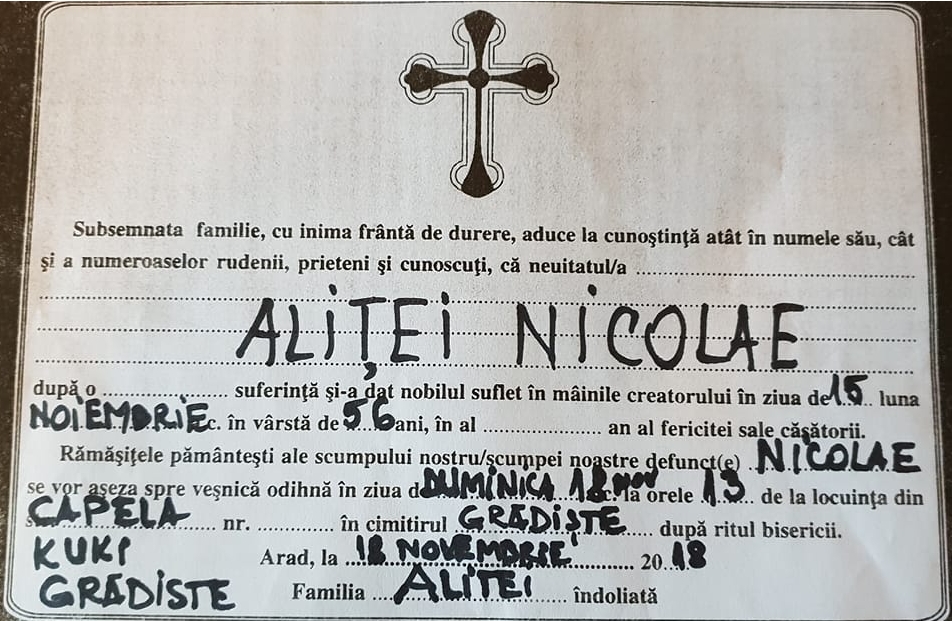 Subsemnata familie, cu inima frântă de durere, aduce la cunoştinţă atât în numele său, cât
şi a numeroaselor rudenii, prieteni şi cunoscuţi, că neuitatul/a
ALIŢEI NICOLAE
după o suferinţă şi-a dat nobilul suflet în mâinile creatorului în ziua de 15 luna
NOIEMBRIE c. în vârstă de 56 ani, în al an al fericitei sale căşătorii.
Rămăşiţele pământeşti ale scumpului nostru/scumpei noastre defunct(e) NICOLAE
se vor aşeza spre veşnică odihnă în ziua de DUMINICA 18 NOV c. la orele 13 de la locuinţa din
CAPELA nr. în cimitirul GRĂDIŞTE după ritul bisericii.
KUKI Arad, la 18 NOVEMBRIE 2018
GRĂDISTE Familia ALITEI îndoliată